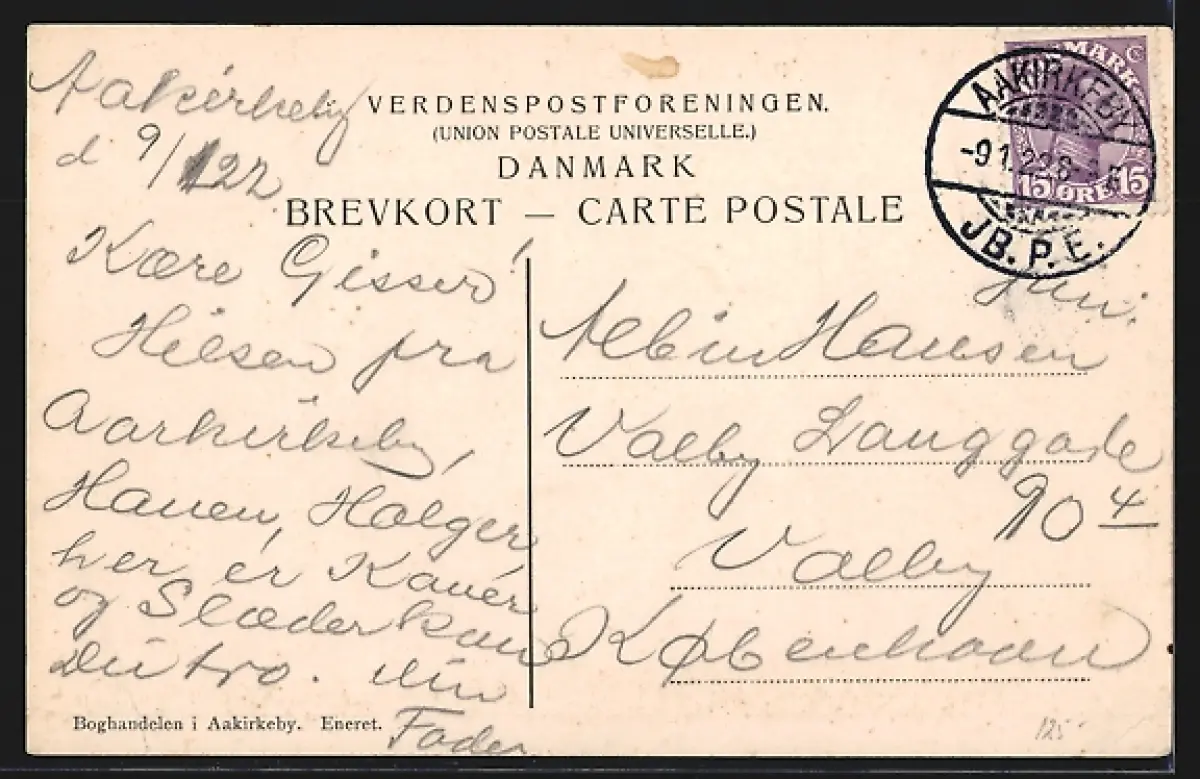 Aakirkeby
d 9/1 22
VERDENSPOSTFORENINGEN.
(UNION POSTALE UNIVERSELLE.)
DANMARK
BREVKORT — CARTE POSTALE
DANMARK
15 ØRE 15
AAKIRKEBY
-9.1.22.
JB.P.E.
Kære Gisser!
Hilsen fra
Aarkirkeby,
Hauen, Holger,
her er Kaner
og Slæder kan
Du tro. din
Fader
Juni.
Albin Hansen
Valby Langgade
90 4
Valby
København
Boghandelen i Aakirkeby. Eneret.
125